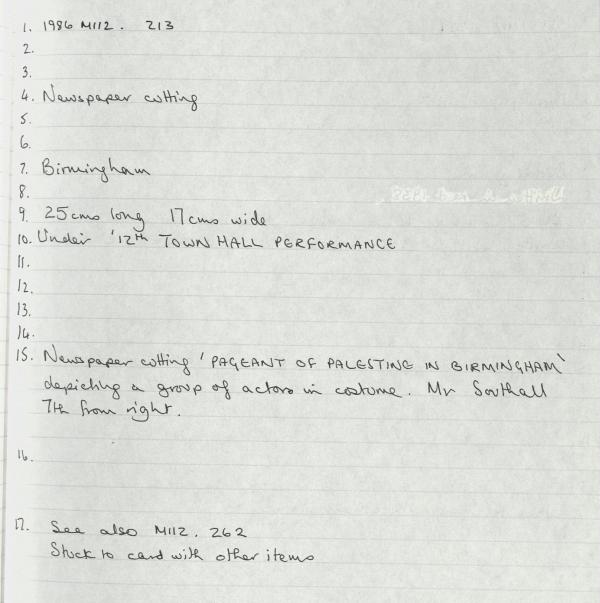 1. 1986 M112. 213
2.
3.
4. Newspaper cutting
5.
6.
7. Birmingham
8.
9. 25cms long 17cms wide
10. Under '12th TOWN HALL PERFORMANCE
11.
12.
13.
14.
15. Newspaper cutting 'PAGEANT OF PALESTINE IN BIRMINGHAM'
depicting a group of actors in costume. Mr Southall
7th from right.
16.
17. See also M112. 262
Stuck to card with other items